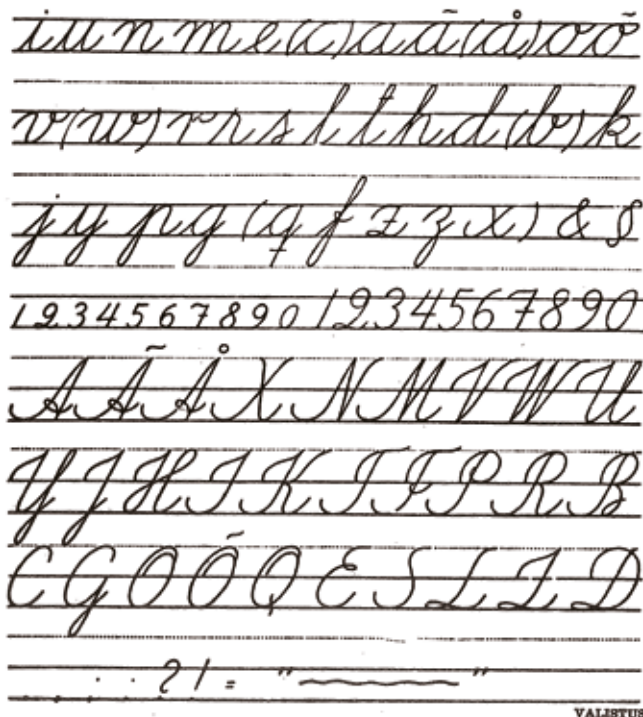 i u n m e (c) a ä (å) o ö
v (w) r r s l t h d (b) k
j y p g (q f z z x) & §
1 2 3 4 5 6 7 8 9 0 1 2 3 4 5 6 7 8 9 0
A Ä Å X N M V W U
Y J H I K T F P R B
C G O Ö Q E S L Z D
? ! = " "
VALISTUS